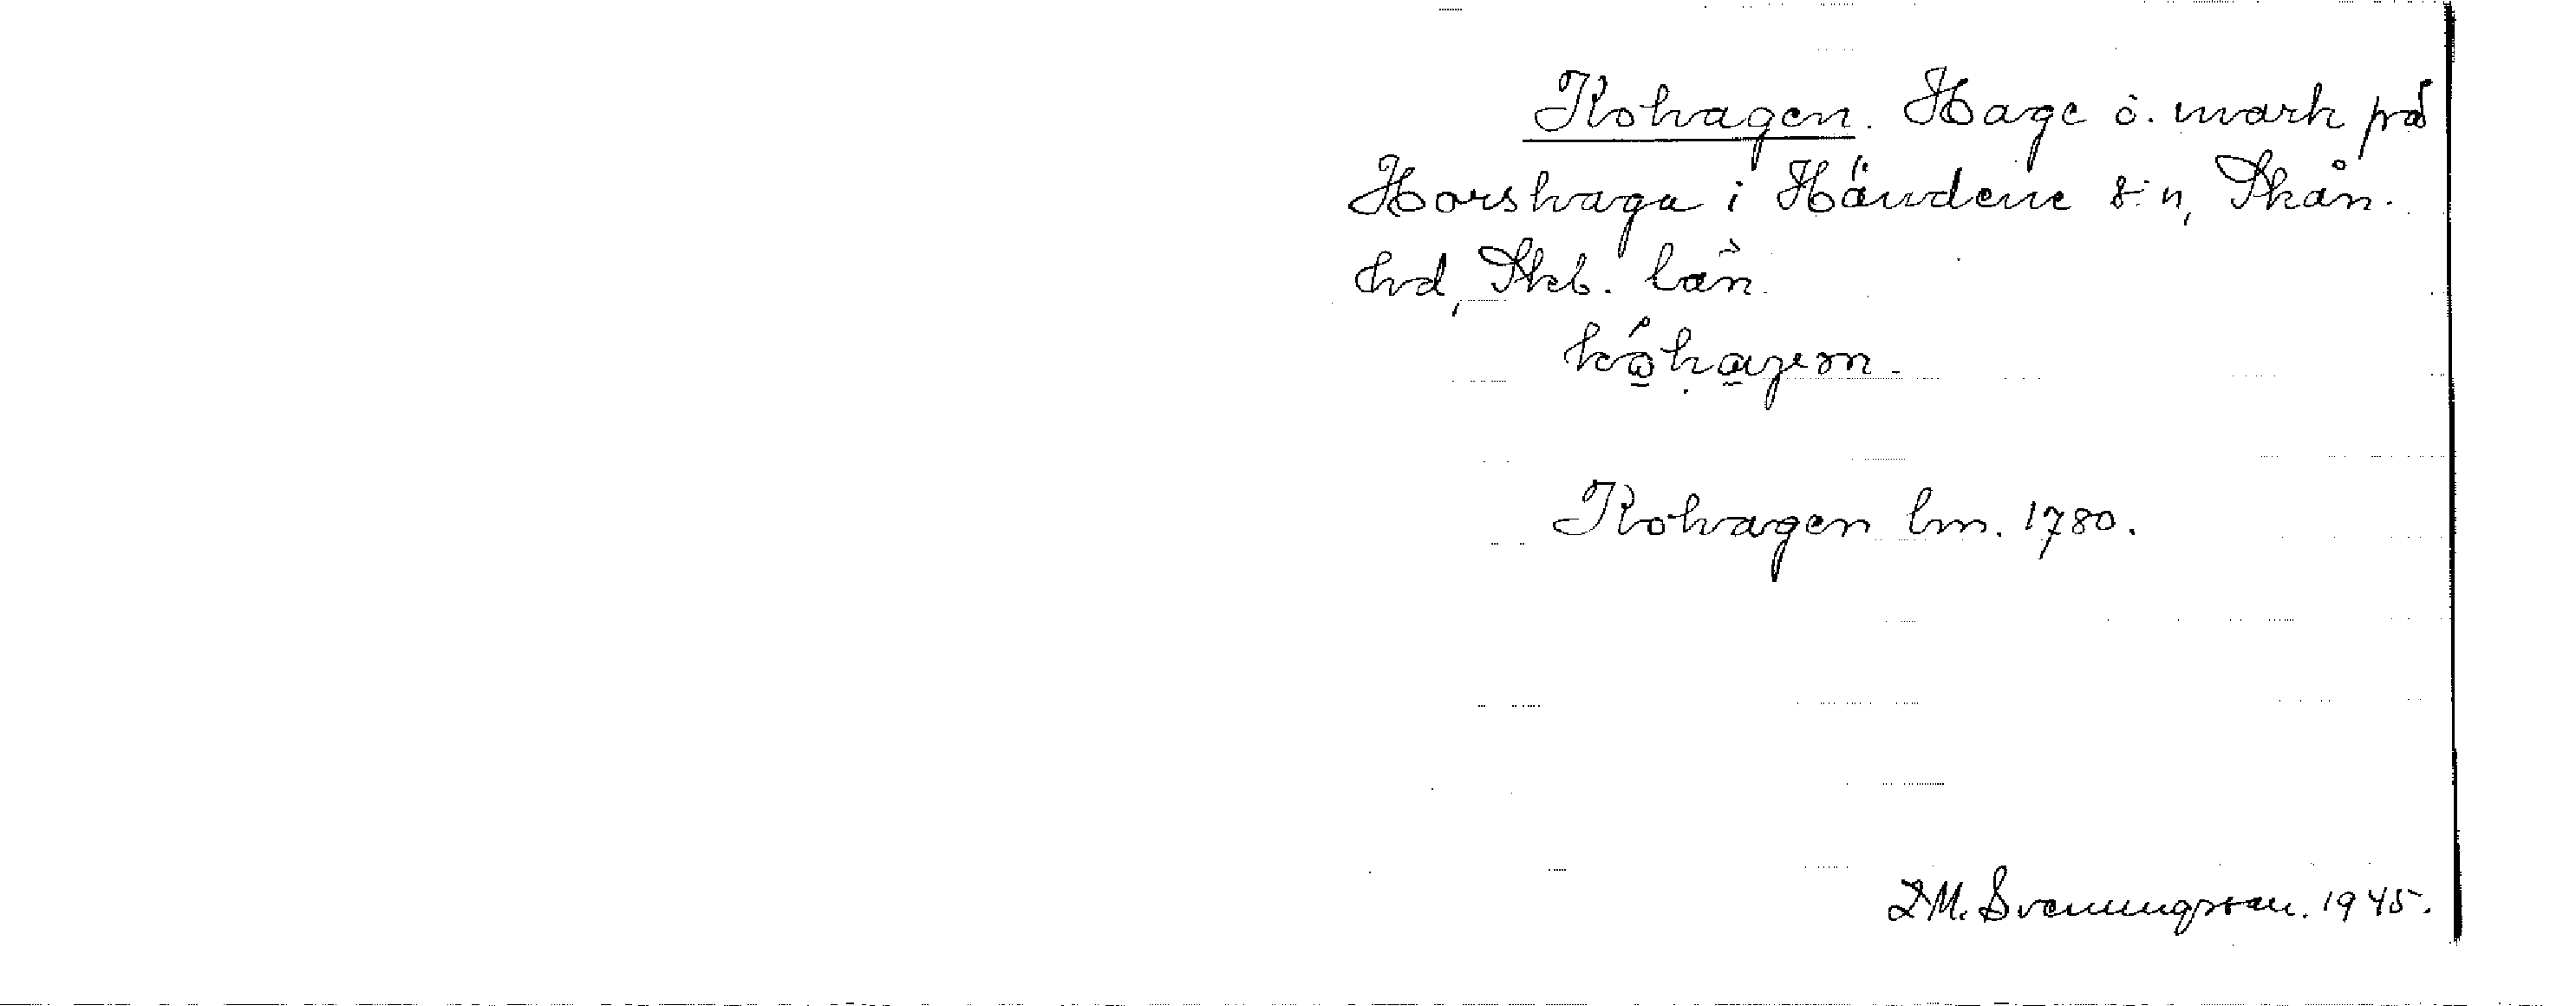 Kohagen. Hage ö. mark på
Horshaga i Händene s:n, Skån.
hd, Skb. län.
Kohagen lm. 1780.
D.M. Svenungsson. 1945.